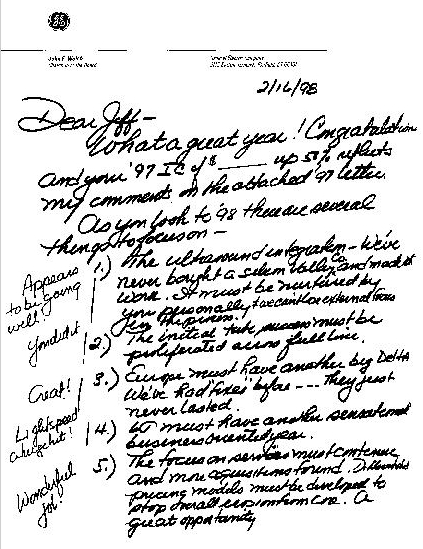 John F. Welch
Chairman of the Board
General Electric Company
2/16/98
Dear Jeff –
What a great year! Congratulations
and your '97 IC of $ ____ up 57% reflects
my comments on the attached '97 letter.
As you look to '98 there are several
things to focus on –
Appears to be going well!
1.) The ultrasound integration – We've
never bought a silicon Valley Co and made it
work. It must be nurtured by
you personally
in the process!
You did it
2.) The initial success must be
proliferated across full line.
Great!
3.) Europe must have another big Delta
We've had "fixes" before --- They just
never lasted.
Lightspeed a huge hit!
4.) CT must have another sensational
business oriented year.
Wonderful job!
5.) The focus on services must continue
and more acquisitions found.
pricing models must be developed to
stop small erosion from core. A
great opportunity